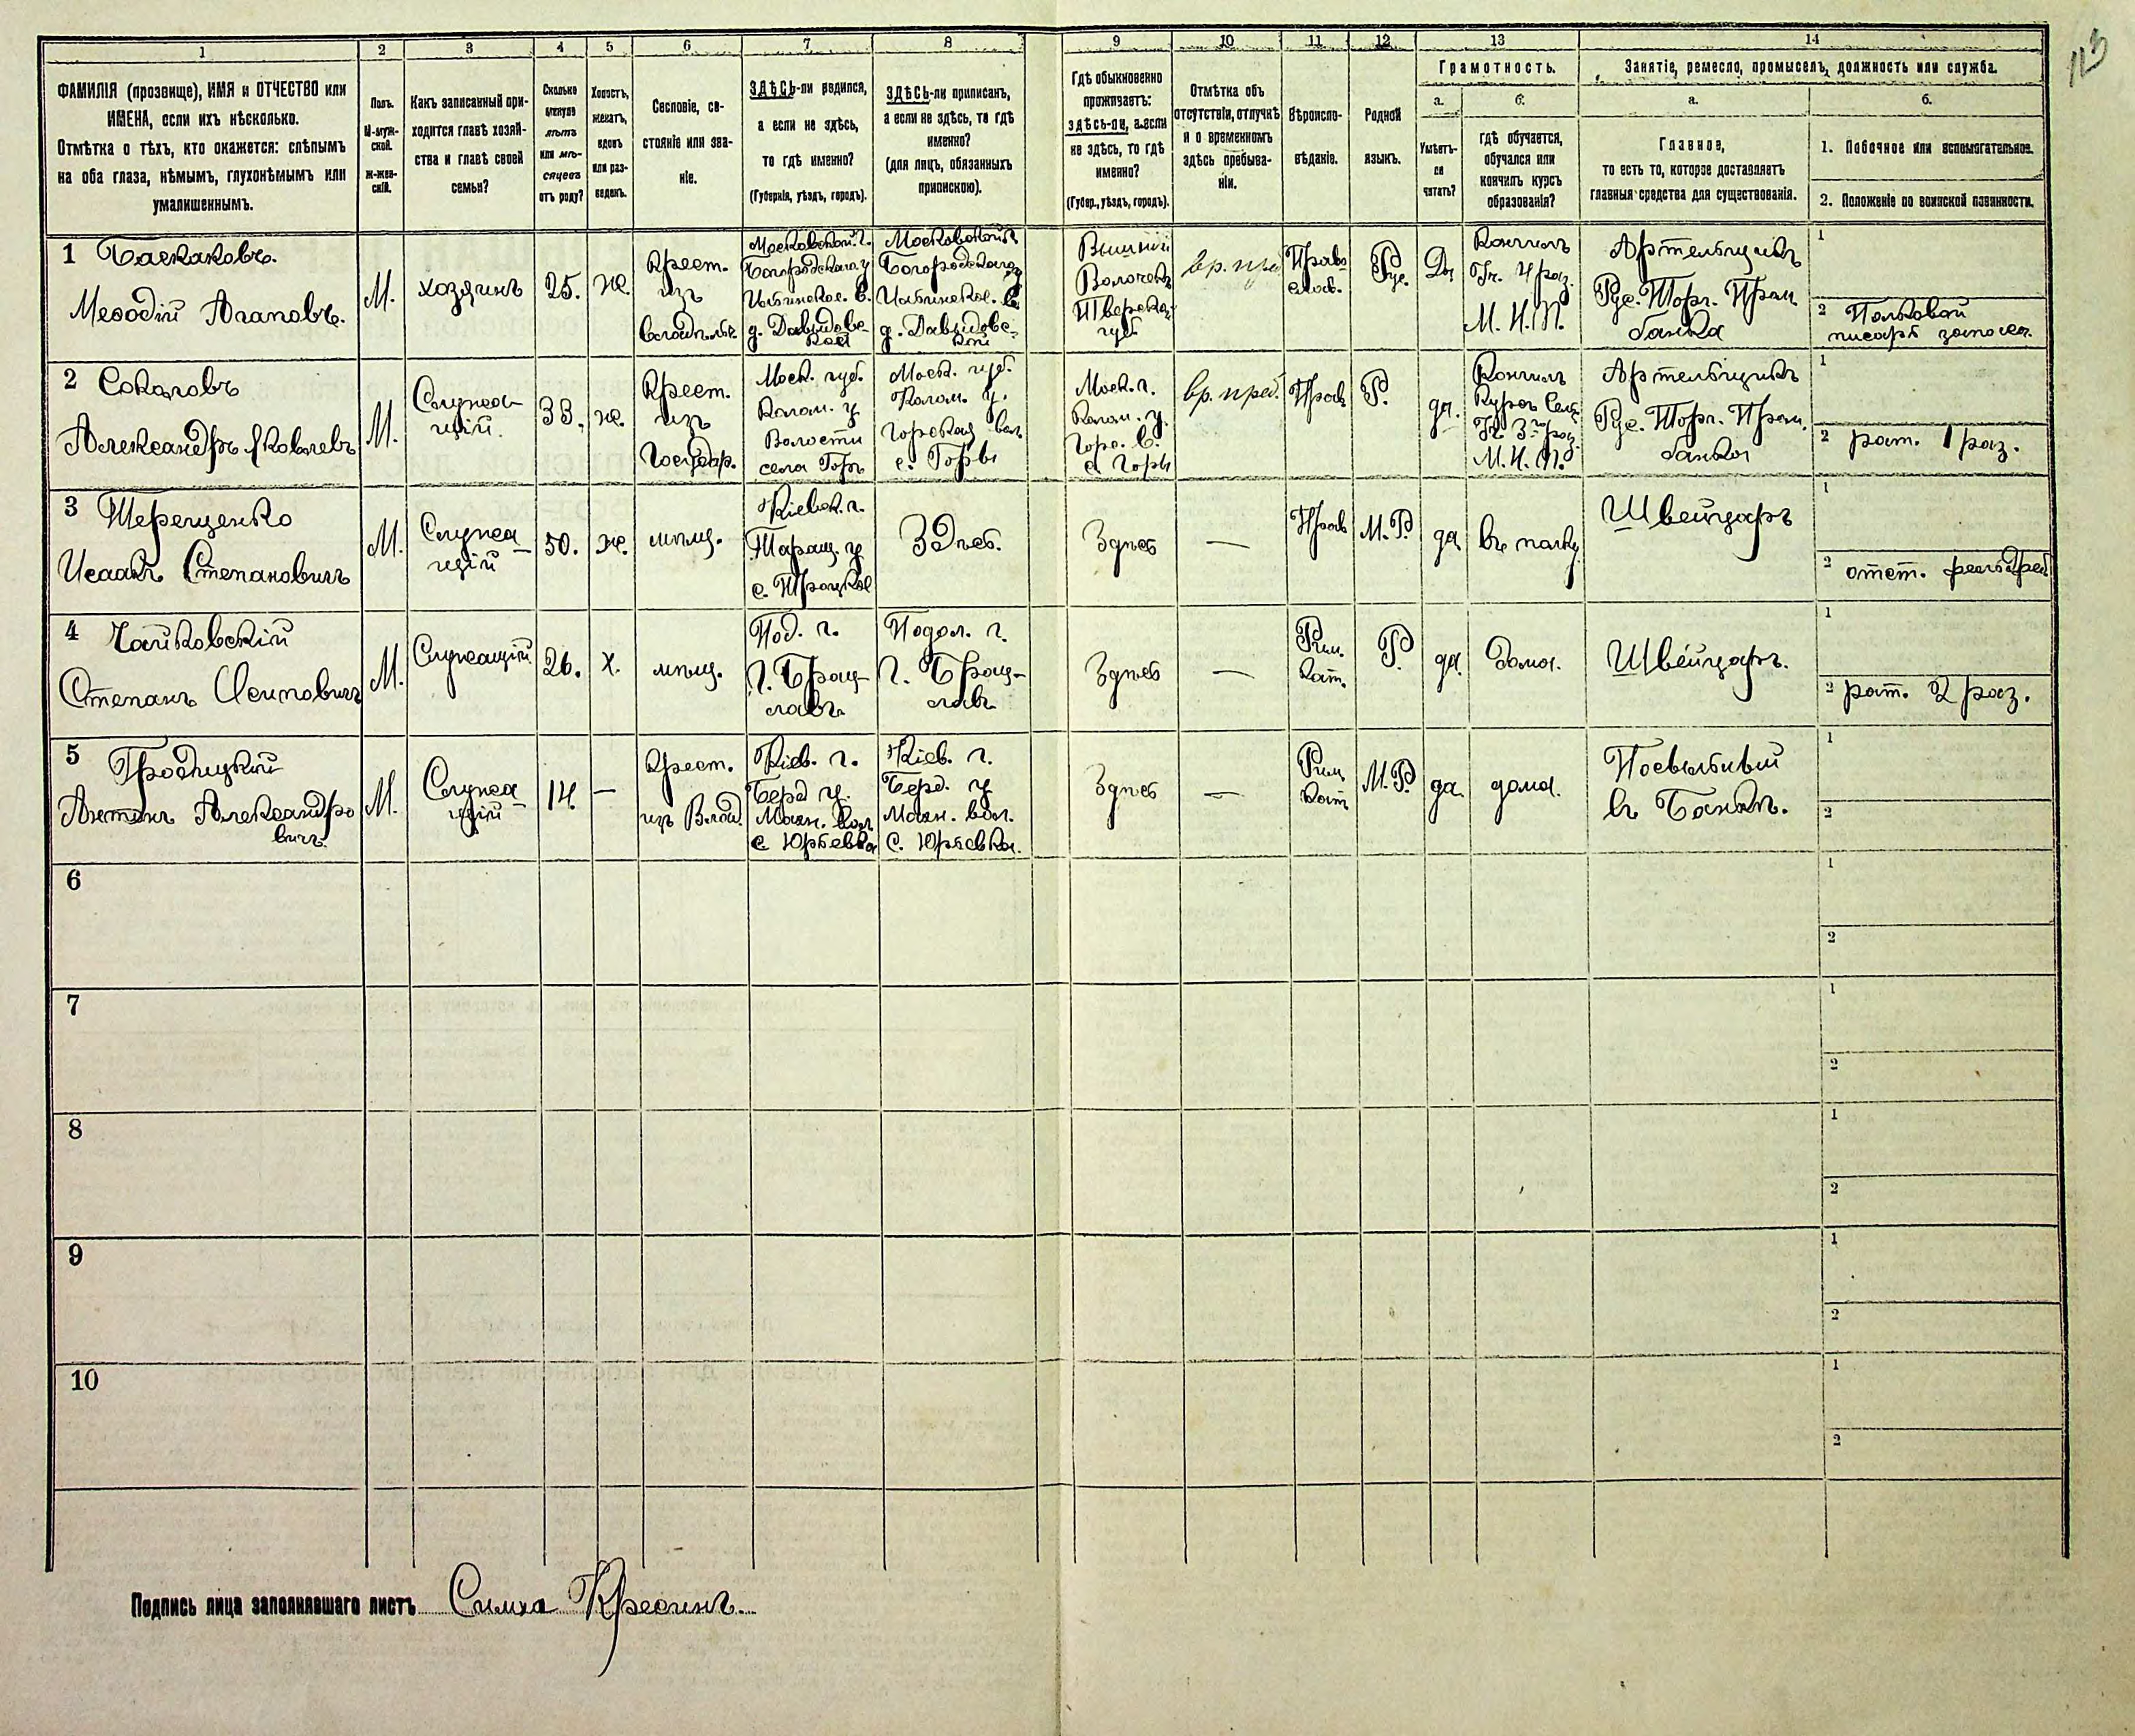 113
1 2 3 4 5 6 7 8 9 10 11 12 13 14
ФАМИЛІЯ (прозвище), ИМЯ и ОТЧЕСТВО или
ИМЕНА, если ихъ нѣсколько.
Отмѣтка о тѣхъ, кто окажется: слѣпымъ
на оба глаза, нѣмымъ, глухонѣмымъ или
умалишеннымъ.
Полъ.
М-муж-
ской.
Ж-жен-
скій.
Какъ записанный при-
ходится главѣ хозяй-
ства и главѣ своей
семьи?
Сколько
минуло
лѣтъ
или мѣ-
сяцевъ
отъ роду?
Холостъ,
женатъ,
вдовъ
или раз-
веденъ.
Сословіе, со-
стояніе или зва-
ніе.
ЗДѢСЬ-ли родился,
а если не здѣсь,
то гдѣ именно?
(Губернія, уѣздъ, городъ).
ЗДѢСЬ-ли приписанъ,
а если не здѣсь, то гдѣ
именно?
(для лицъ, обязанныхъ
припискою).
Гдѣ обыкновенно
проживаетъ:
здѣсь-ли, а если
не здѣсь, то гдѣ
именно?
(Губер., уѣздъ, городъ).
Отмѣтка объ
отсутствіи, отлучкѣ
и о временномъ
здѣсь пребыва-
ніи.
Вѣроиспо-
вѣданіе.
Родной
языкъ.
Грамотность.
а.
Умѣетъ-
ли
читать?
б.
гдѣ обучается,
обучался или
кончилъ курсъ
образованія?
Занятіе, ремесло, промыселъ, должность или служба.
а.
Главное,
то есть то, которое доставляетъ
главныя средства для существованія.
б.
1. Побочное или вспомогательное.
2. Положеніе по воинской повинности.
1 Баскаковъ.
Меѳодій Агаповъ.
М.
хозяинъ
25.
ж.
Крест.
изъ
Московской г.
Богородскаго у
д. Давыдовс-
кой
Московской г
Богородскаго у
д. Давыдовс-
кой
Вышній
Волочекъ
Тверск.
губ
вр. преб
Право
слав.
Рус.
Да
Кончилъ
М. Н. П.
Артельщикъ
Рус. Торг. Пром.
банка
1
2 Полковой
писарь запаса.
2 Соколовъ
Александръ Яковлевъ
М.
Служа-
щій.
33.
ж.
Крест.
изъ
Государ.
Моск. губ.
Колом. у.
Волости
села Горъ
Моск. губ.
Колом. у.
Горская вол.
с. Горы
Моск. г.
Колом. у.
Горс. в.
с. Горы
вр. преб.
Прав
Р.
да.
Кончилъ
Курсъ Сел.
М. Н. П.
Артельщикъ
Рус. Торг. Пром.
банка
1
2 рат. 1 раз.
3 Терещенко
Исаакъ Степановичъ
М.
Служа
щій
50.
ж.
мѣщ.
Кіевск. г.
Таращ. у
с. Троцкое
Здѣсь.
Здѣсь
—
Прав
М. Р.
да
въ полку
Швейцаръ
1
2 отст. фельдфеб
4 Чайковскій
Степанъ Осиповичъ
М.
Служащій
26.
х.
мѣщ.
Под. г.
г. Брац-
лавъ
Подол. г.
г. Брац-
лавъ
Здѣсь
—
Рим.
Кат.
Р
да
дома.
Швейцаръ.
1
2 рат. 2 раз.
5 Гродицкій
Антонъ Александро
вичъ.
М.
Служа
щій
14.
—
Крест.
изъ Влад.
Кіев. г.
Берд у.
Махн. вол
с Юрьевка
Кіев. г.
Берд. у
Махн. вол.
с. Юрьевка.
Здѣсь
—
Рим
Кат
М. Р
да.
дома.
Посыльный
въ Банкѣ.
1
2
6
1
2
7
1
2
8
1
2
9
1
2
10
1
2
Подпись лица заполнявшаго листъ Симха Кресинъ